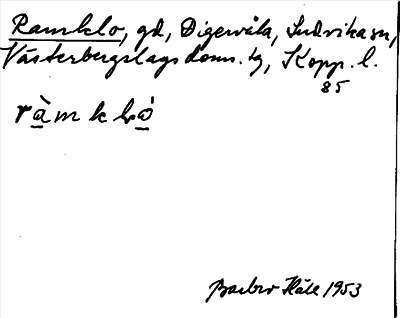 Ramklo, gd, Digervåla, Ludvika sn,
Västerbergslags doms. tg, Kopp. l.
85
ràmkló
Barbro Häll 1953